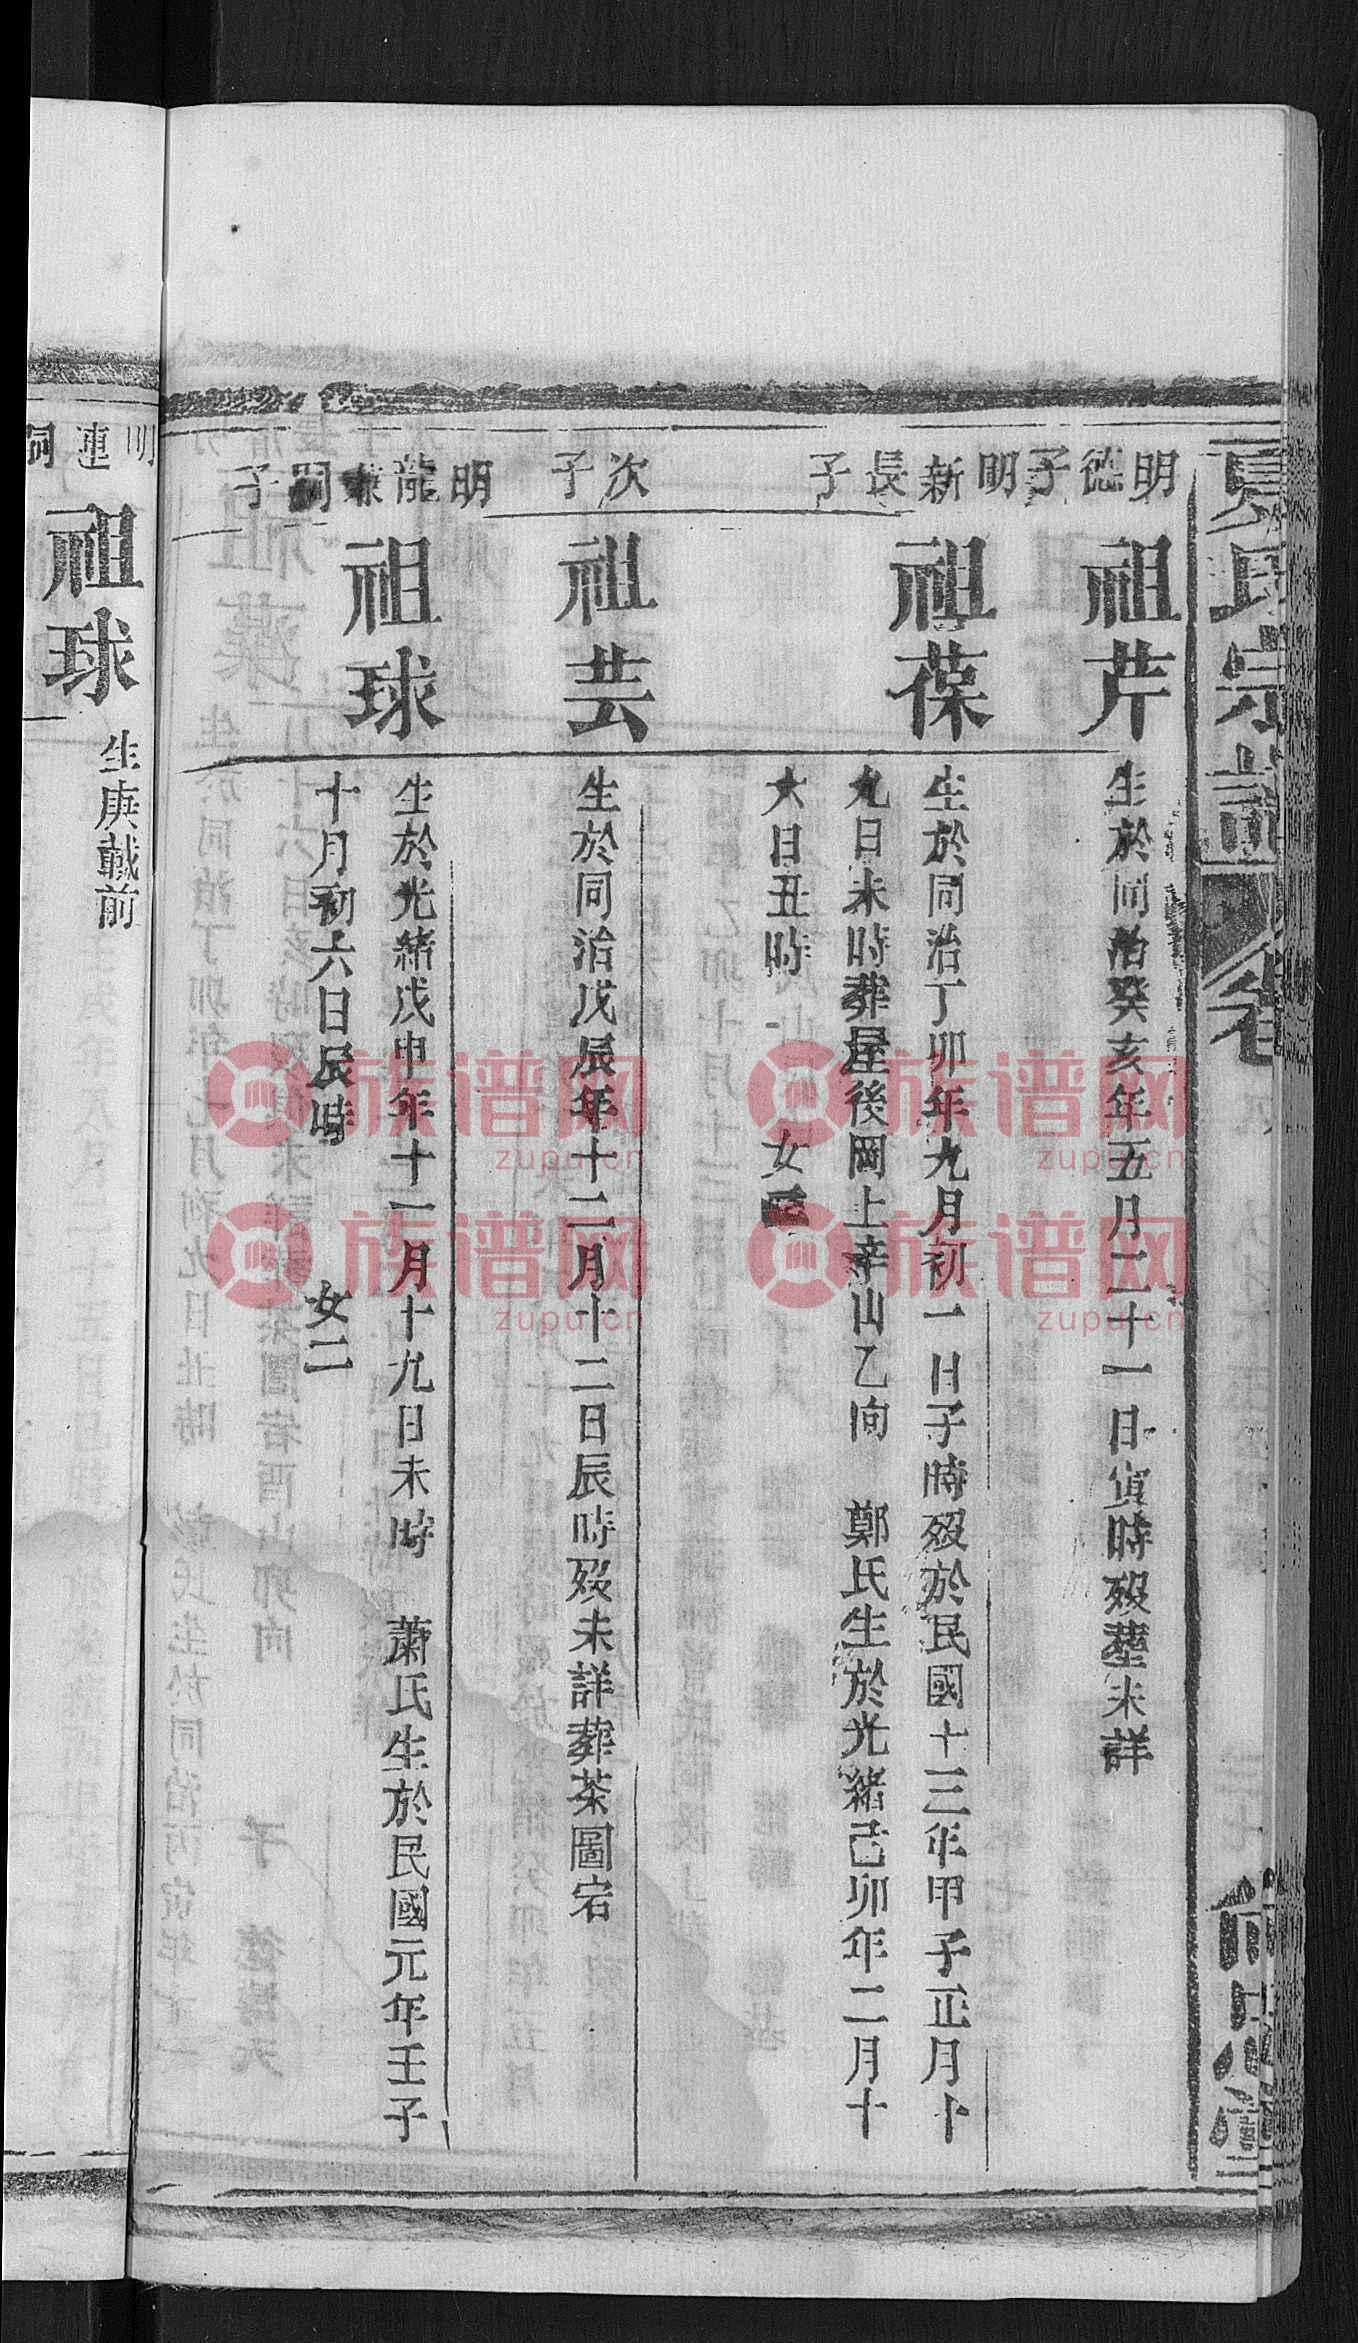 夏氏宗譜
明德子
祖芹
生於同治癸亥年五月二十一日寅時歿塟未詳
明新長子
祖葆
生於同治丁卯年九月初一日子時歿於民國十三年甲子正月卜
九日未時葬屋後岡上辛山乙向 鄭氏生於光緒己卯年二月十
六日丑時 女
次子
祖芸
生於同治戊辰年十二月十二日辰時歿未詳葬茶圖宕
明龍兼祠子
祖球
生於光緒戊申年十一月十九日未時 蕭氏生於民國元年壬子
十月初六日辰時 女二
明連祠
祖球
生庚載前
族谱网
zupu.cn
族谱网
zupu.cn
族谱网
zupu.cn
族谱网
zupu.cn